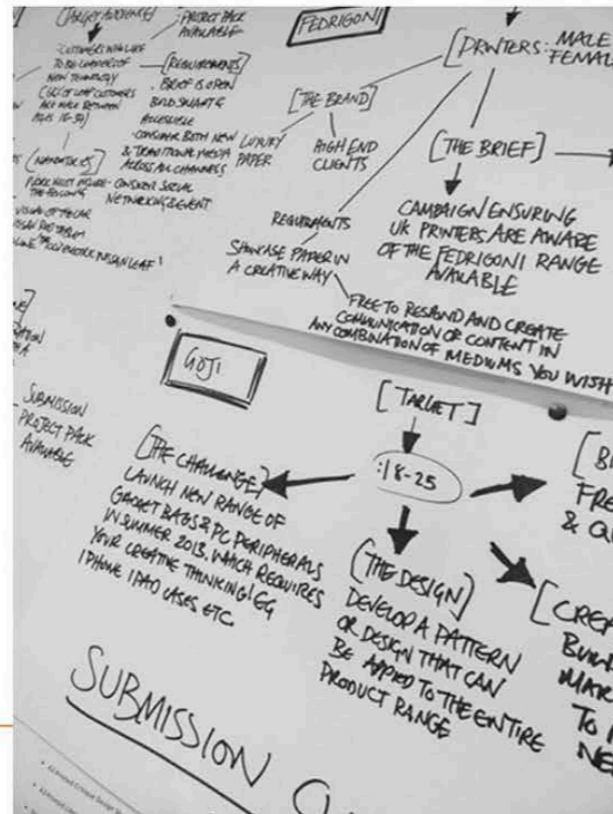 [TARGET AUDIENCE]
: CUSTOMERS WHO LIKE
TO BE LEADERS OF
NEW TECHNOLOGY
ARE MALE BETWEEN
: PROJECT PACK
AVAILABLE
[REQUIREMENTS]
. BRIEF IS OPEN
BOLD, SMART &
ACCESSIBLE
- CONSIDER BOTH NEW
& TRADITIONAL MEDIA
ACROSS ALL CHANNELS
- CONSIDER SOCIAL
NETWORKING & EVENT
[MANDATORIES]
THE FOLLOWING
FEDRIGONI
[THE BRAND]
LUXURY
PAPER
HIGH END
CLIENTS
[PRINTERS: MALE
FEMAL
[THE BRIEF]
CAMPAIGN ENSURING
UK PRINTERS ARE AWARE
OF THE FEDRIGONI RANGE
AVAILABLE
REQUIREMENTS
SHOWCASE PAPER IN
A CREATIVE WAY
FREE TO RESPOND AND CREATE
COMMUNICATION OR CONTENT IN
ANY COMBINATION OF MEDIUMS YOU WISH
SUBMISSION
PROJECT PACK
AVAILABLE
GOJI
[TARGET]
:18-25
[THE CHALLENGE]
LAUNCH NEW RANGE OF
GADGET BAGS & PC PERIPHERALS
IN SUMMER 2013. WHICH REQUIRES
YOUR CREATIVE THINKING! EG
IPHONE IPAD CASES ETC.
[THE DESIGN]
DEVELOP A PATTERN
OR DESIGN THAT CAN
BE APPLIED TO THE ENTIRE
PRODUCT RANGE
FRE
& QU
[CREA
BUIL
MAR
TO
NE
SUBMISSION